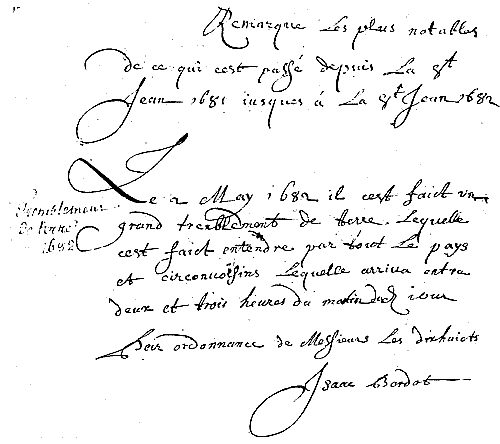 Remarque les plus notables
de ce qui cest passé depuis La St
Jean 1681 iusques á La St Jean 1682
Le 2 May 1682 il cest faict un
grand tremblement de terre. Lequelle
cest faict entendre par tout le pays
et circonvoisins Lequelle arriva entre
deux et trois heures du matin dud iour
Tremblement
de terre
1682
Par ordonnance de Messieurs Les dixhuicts
Isaac Bordot